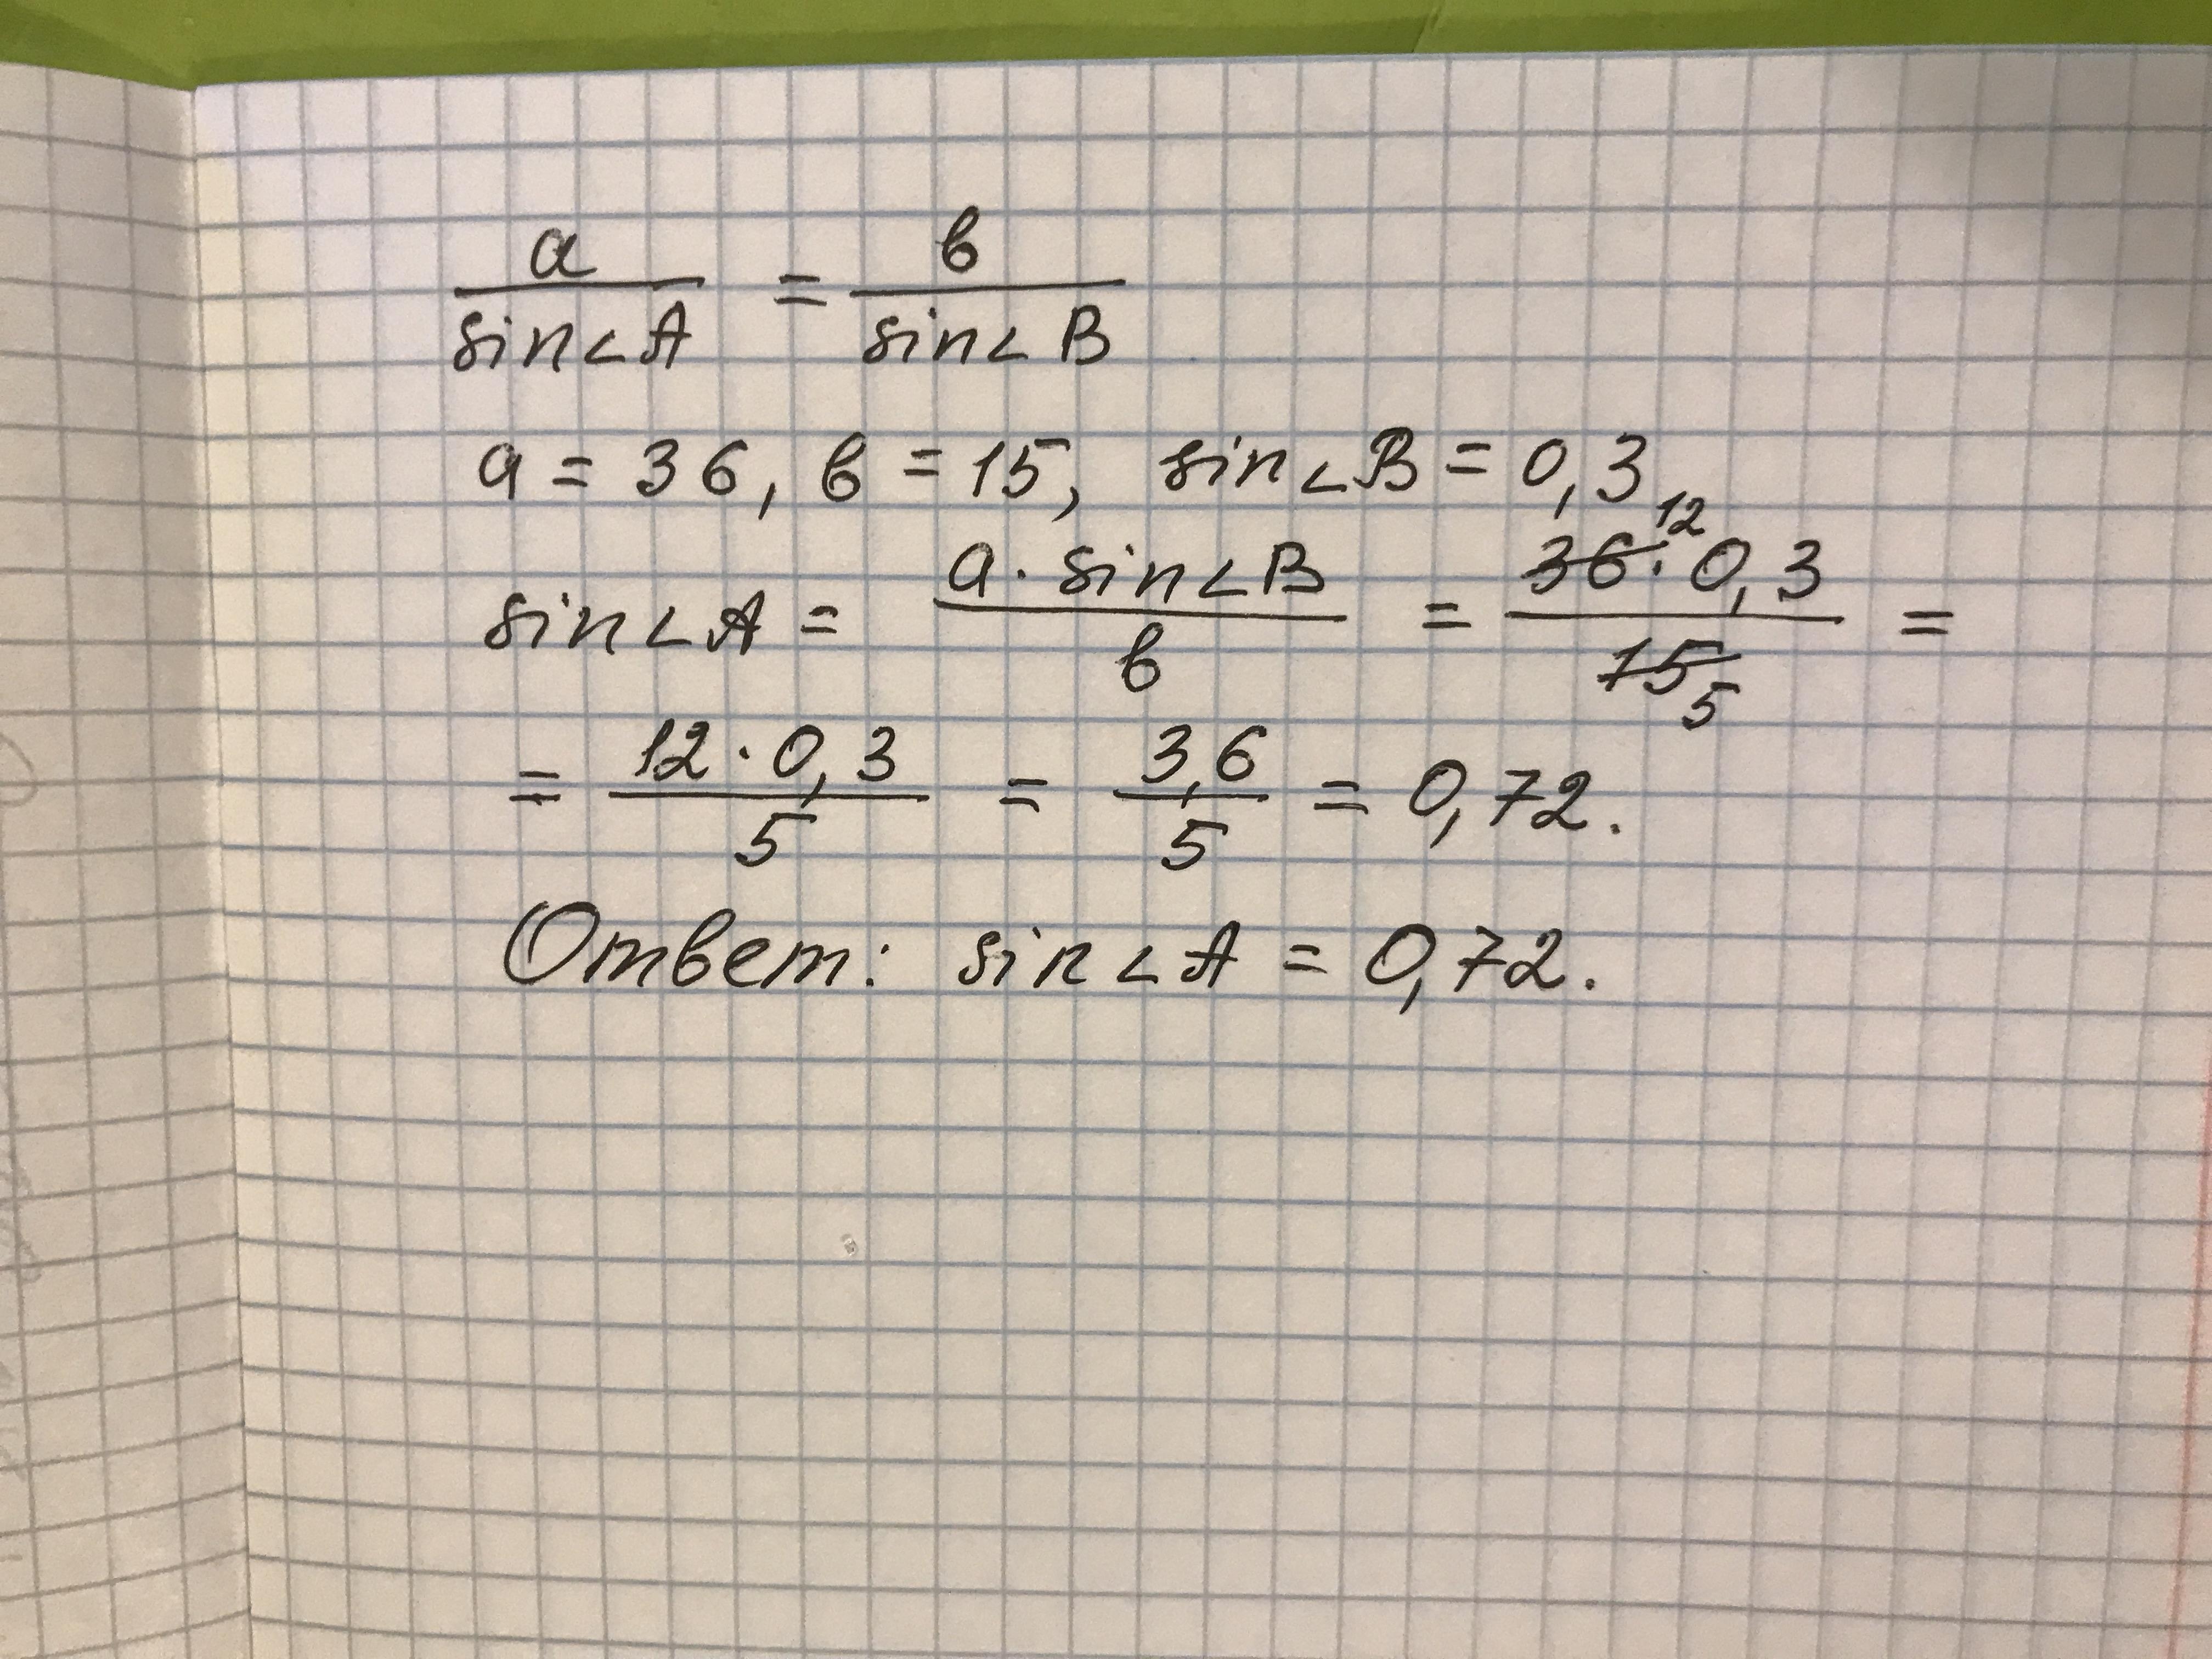 a/sin∠A = b/sin∠B
a = 36, b = 15, sin∠B = 0,3
sin∠A = a · sin∠B/b = 36 12 · 0,3/15 5 =
= 12 · 0,3/5 = 3,6/5 = 0,72.
Ответ: sin∠A = 0,72.